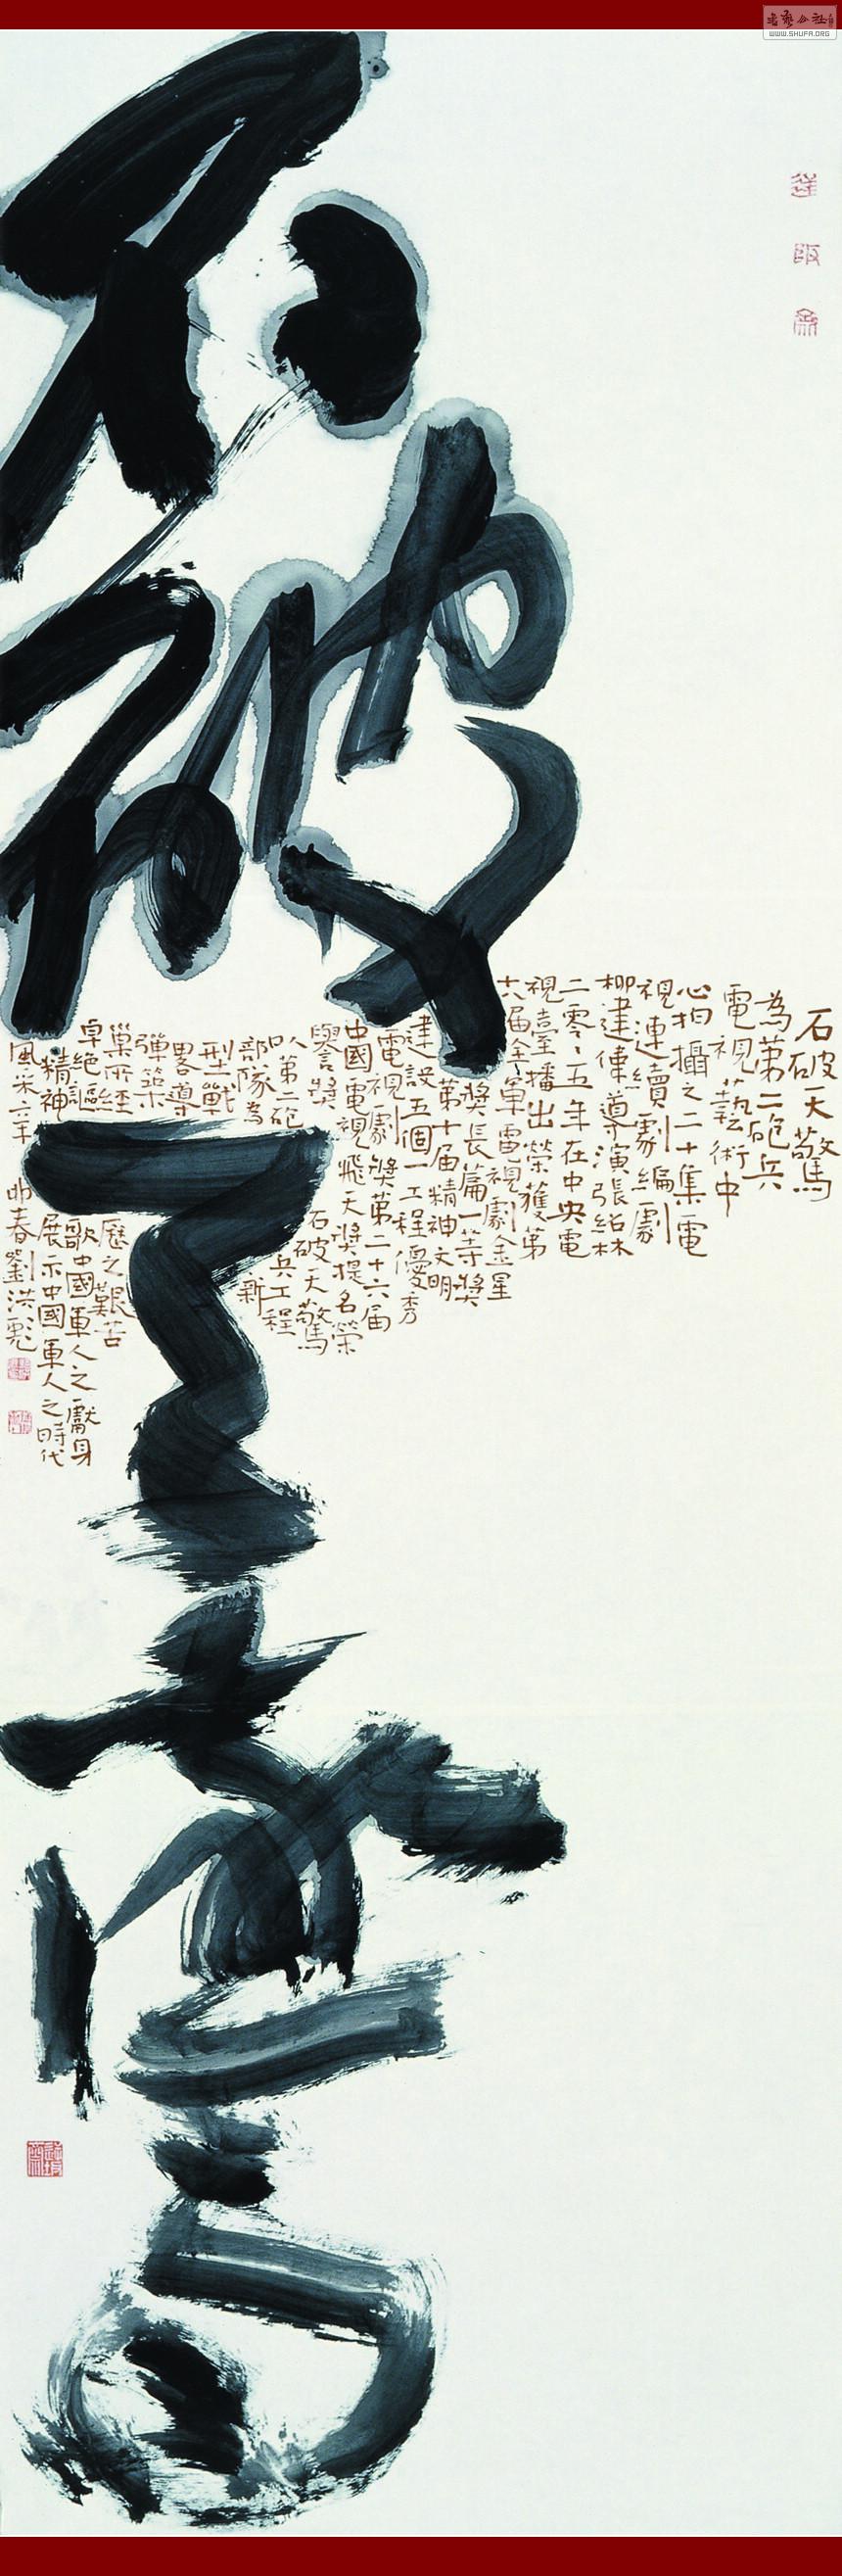 WWW.SHUFA.ORG
石破天驚
石破天驚
為第二砲兵
電視藝術中
心拍攝之二十集電
視連續劇編劇
柳建偉導演張紹林
二零零五年在中央電
視臺播出榮獲第
六届全軍電視劇金星
獎長篇一等獎
第十届精神文明
建設五個一工程優秀
電視劇獎第二十六届
中國電視飛天獎提名榮
譽獎石破天驚
以第二砲兵工程
部隊為新
型戰
畧導
彈築
巢所經歷之艱苦
卓絕謳歌中國軍人之獻身
精神展示中國軍人之時代
風采六年春劉洪彪